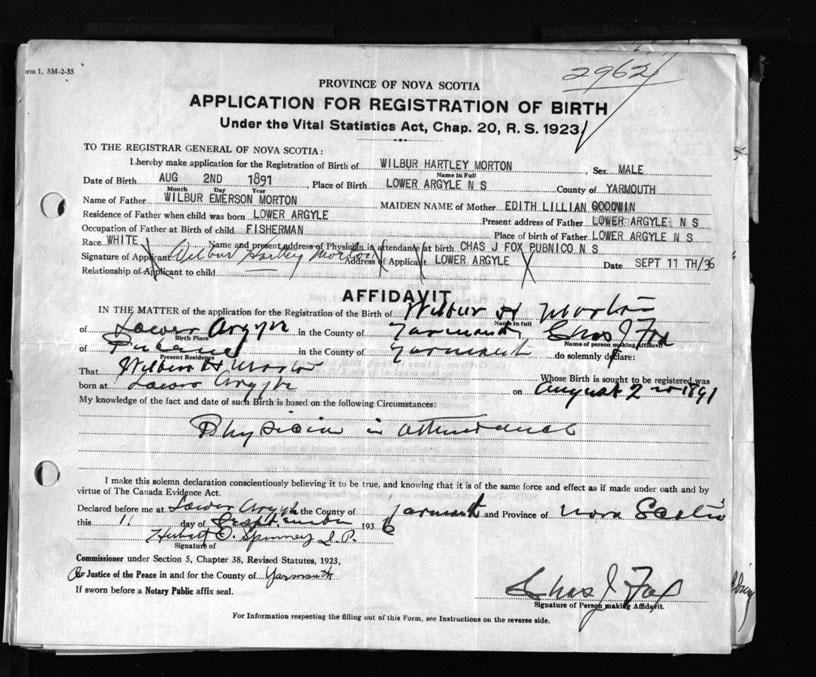 orm 1. 5M-2-35
2962
PROVINCE OF NOVA SCOTIA
APPLICATION FOR REGISTRATION OF BIRTH
Under the Vital Statistics Act, Chap. 20, R. S. 1923
TO THE REGISTRAR GENERAL OF NOVA SCOTIA:
I hereby make application for the Registration of Birth of WILBUR HARTLEY MORTON, Sex MALE
Name in Full
Date of Birth AUG 2ND 1891, Place of Birth LOWER ARGYLE N S County of YARMOUTH
Month Day Year
Name of Father WILBUR EMERSON MORTON MAIDEN NAME of Mother EDITH LILLIAN GOODWIN
Residence of Father when child was born LOWER ARGYLE Present address of Father LOWER ARGYLE N S
Occupation of Father at Birth of child FISHERMAN Place of birth of Father LOWER ARGYLE N S
Race WHITE Name and present address of Physician in attendance at birth CHAS J FOX PUBNICO N S
Signature of Applicant Wilbur Hartley Morton Address of Applicant LOWER ARGYLE Date SEPT 11 TH/36
Relationship of Applicant to child
AFFIDAVIT
IN THE MATTER of the application for the Registration of the Birth of Wilbur H Morton
Name in full
of Lower Argyle in the County of Yarmouth Chas J Fox
Birth Place Name of person making Affidavit
of Pubnico in the County of Yarmouth do solemnly declare:
Present Residence
That Wilbur H Morton Whose Birth is sought to be registered was
born at Lower Argyle on August 2nd 1891
My knowledge of the fact and date of such Birth is based on the following Circumstances:
Physician in attendance
I make this solemn declaration conscientiously believing it to be true, and knowing that it is of the same force and effect as if made under oath and by
virtue of The Canada Evidence Act.
Declared before me at Lower Argyle the County of Yarmouth and Province of Nova Scotia
this 11 day of September 1936
Hubert O. Spinney J.P.
Signature of
Commissioner under Section 5, Chapter 38, Revised Statutes, 1923,
Or Justice of the Peace in and for the County of Yarmouth
If sworn before a Notary Public affix seal.
Chas J Fox
Signature of Person making Affidavit.
For Information respecting the filling out of this Form, see Instructions on the reverse side.